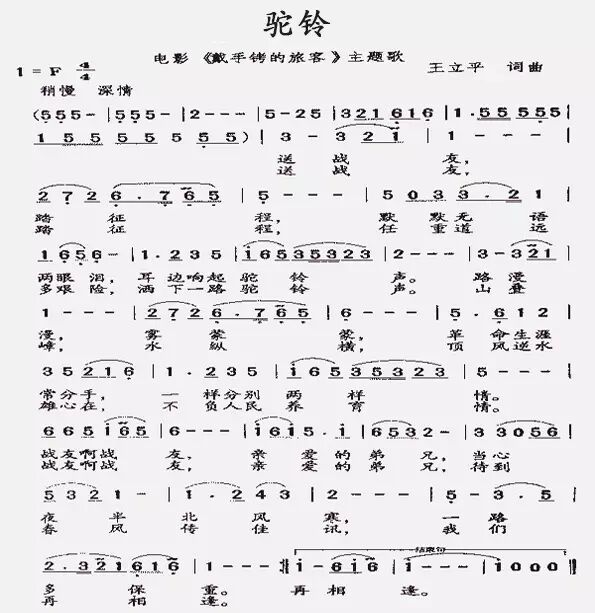 驼铃
电影《戴手铐的旅客》主题歌
1 = F 4/4
王立平 词曲
稍慢 深情
(555- | 555- | 2--- | 5-25 | 321616 | 1.55555
155555 55) | 3-321 | 1---
送战友，
送战友，
2726.765 | 5--- | 5033.21
踏征程， 默默无语
踏征程， 任重道远
1656- | 1.235 | 16535323 | 2--- | 3-321
两眼泪，耳边响起驼铃声。路漫
多艰险，洒下一路驼铃声。山叠
1--- | 2726.765 | 6--- | 5.612
漫，雾蒙蒙，革命生涯
嶂，水纵横，顶风逆水
35216 | 1.235 | 16535323 | 5---
常分手，一样分别两样情。
雄心在，不负人民养育情。
665165 | 6--- | 1615.1 | 6532- | 33056
战友啊战友，亲爱的弟兄，当心
战友啊战友，亲爱的弟兄，待到
5321- | 1.243 | 2--- | 5-3.5
夜半北风寒，一路
春风传佳讯，我们
2.321616 | 1--- :| 1-616 | 1--- | 1000
结束句
多保重。再相逢。
再相逢。